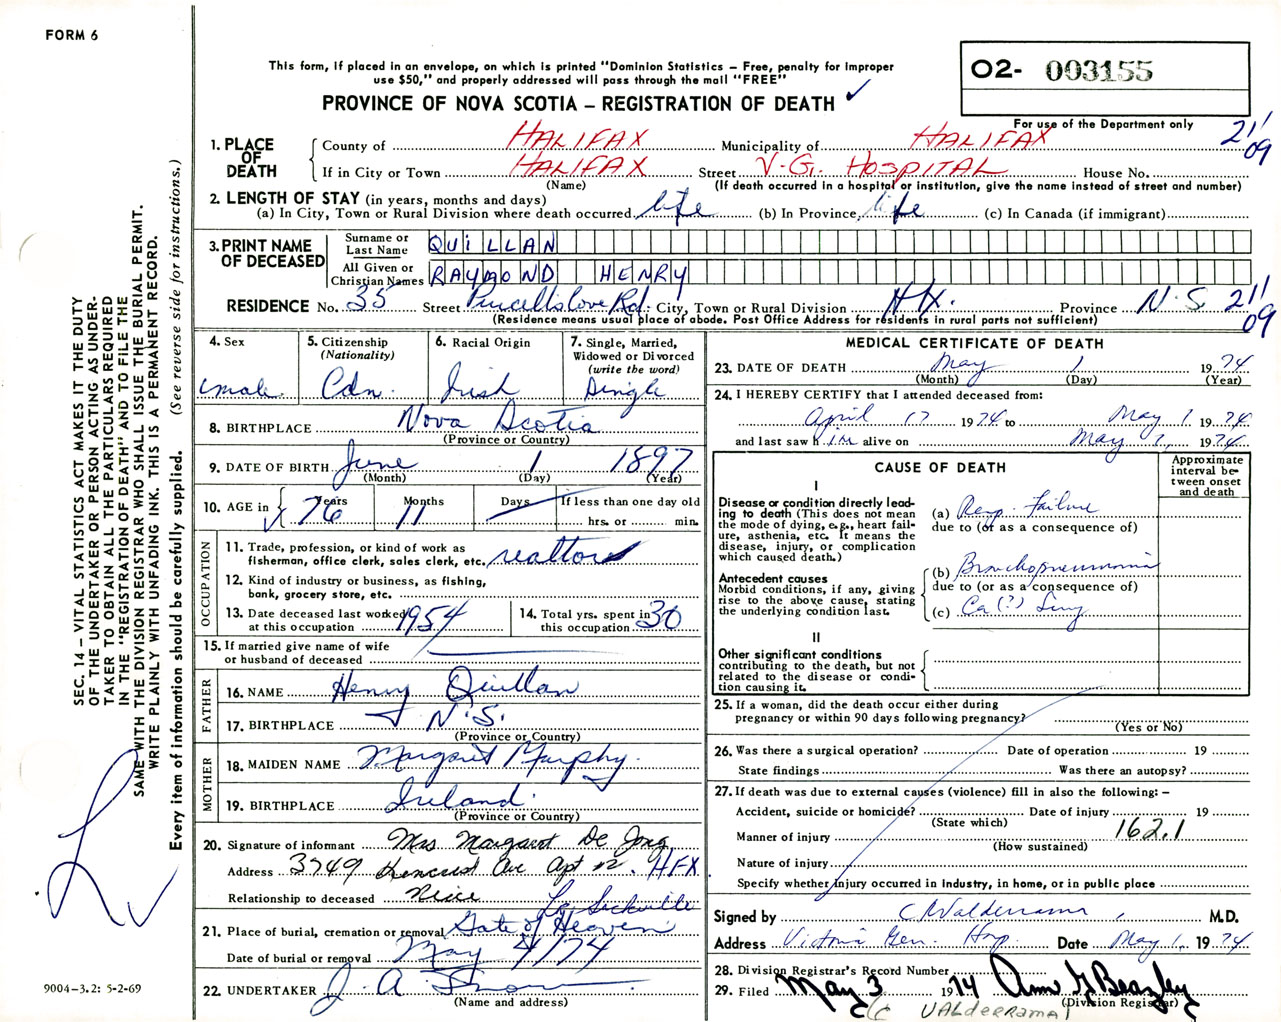 FORM 6
This form, if placed in an envelope, on which is printed "Dominion Statistics – Free, penalty for improper
use $50," and properly addressed will pass through the mail "FREE"
PROVINCE OF NOVA SCOTIA – REGISTRATION OF DEATH ✓
02- 003155
For use of the Department only
211
09
1. PLACE OF DEATH
County of HALIFAX Municipality of HALIFAX
If in City or Town HALIFAX Street V.G. HOSPITAL House No.
(Name) (If death occurred in a hospital or institution, give the name instead of street and number)
2. LENGTH OF STAY (in years, months and days)
(a) In City, Town or Rural Division where death occurred life (b) In Province life (c) In Canada (if immigrant)
3. PRINT NAME OF DECEASED
Surname or Last Name QUILLAN
All Given or Christian Names RAYMOND HENRY
RESIDENCE No. 35 Street Purcells Cove Rd. City, Town or Rural Division HX. Province N.S. 211
09
(Residence means usual place of abode. Post Office Address for residents in rural parts not sufficient)
4. Sex male
5. Citizenship (Nationality) Cdn.
6. Racial Origin Irish
7. Single, Married, Widowed or Divorced (write the word) Single
8. BIRTHPLACE Nova Scotia
(Province or Country)
9. DATE OF BIRTH June 1 1897
(Month) (Day) (Year)
10. AGE in Years 76 Months 11 Days If less than one day old
hrs. or min.
OCCUPATION
11. Trade, profession, or kind of work as
fisherman, office clerk, sales clerk, etc. realtor
12. Kind of industry or business, as fishing,
bank, grocery store, etc.
13. Date deceased last worked at this occupation 1954
14. Total yrs. spent in this occupation 30
15. If married give name of wife
or husband of deceased
FATHER
16. NAME Henry Quillan
17. BIRTHPLACE N.S.
(Province or Country)
MOTHER
18. MAIDEN NAME Margaret Murphy
19. BIRTHPLACE Ireland
(Province or Country)
20. Signature of informant Mrs Margaret De Jong
Address 3749 Ave Apt 12. HFX
Relationship to deceased Niece
Lr Sackville
21. Place of burial, cremation or removal Gate of Heaven
Date of burial or removal May 4/74
22. UNDERTAKER J. A. Snow
(Name and address)
MEDICAL CERTIFICATE OF DEATH
23. DATE OF DEATH May 1 1974
(Month) (Day) (Year)
24. I HEREBY CERTIFY that I attended deceased from:
April 17 1974 to May 1 1974
and last saw him alive on May 1, 1974
CAUSE OF DEATH
Approximate interval between onset and death
I
Disease or condition directly lead-
ing to death (This does not mean
the mode of dying, e.g., heart fail-
ure, asthenia, etc. It means the
disease, injury, or complication
which caused death.)
(a) Resp. Failure
due to (or as a consequence of)
Antecedent causes
Morbid conditions, if any, giving
rise to the above cause, stating
the underlying condition last.
(b) Bronchopneumonia
due to (or as a consequence of)
(c) Ca (?) Lung
II
Other significant conditions
contributing to the death, but not
related to the disease or condi-
tion causing it.
25. If a woman, did the death occur either during
pregnancy or within 90 days following pregnancy?
(Yes or No)
26. Was there a surgical operation? Date of operation 19
State findings Was there an autopsy?
27. If death was due to external causes (violence) fill in also the following: –
Accident, suicide or homicide? Date of injury 19
(State which) 162.1
Manner of injury
(How sustained)
Nature of injury
Specify whether injury occurred in industry, in home, or in public place
Signed by C Valderrama, M.D.
Address Victoria Gen. Hosp. Date May 1, 1974
28. Division Registrar's Record Number
29. Filed May 3 1974 Ann G Beazley
(Division Registrar)
(C VALDERRAMA)
SEC. 14 – VITAL STATISTICS ACT MAKES IT THE DUTY
OF THE UNDERTAKER OR PERSON ACTING AS UNDER-
TAKER TO OBTAIN ALL THE PARTICULARS REQUIRED
IN THE "REGISTRATION OF DEATH" AND TO FILE THE
SAME WITH THE DIVISION REGISTRAR WHO SHALL ISSUE THE BURIAL PERMIT.
WRITE PLAINLY WITH UNFADING INK. THIS IS A PERMANENT RECORD.
Every item of information should be carefully supplied. (See reverse side for instructions.)
9004-3.2: 5-2-69